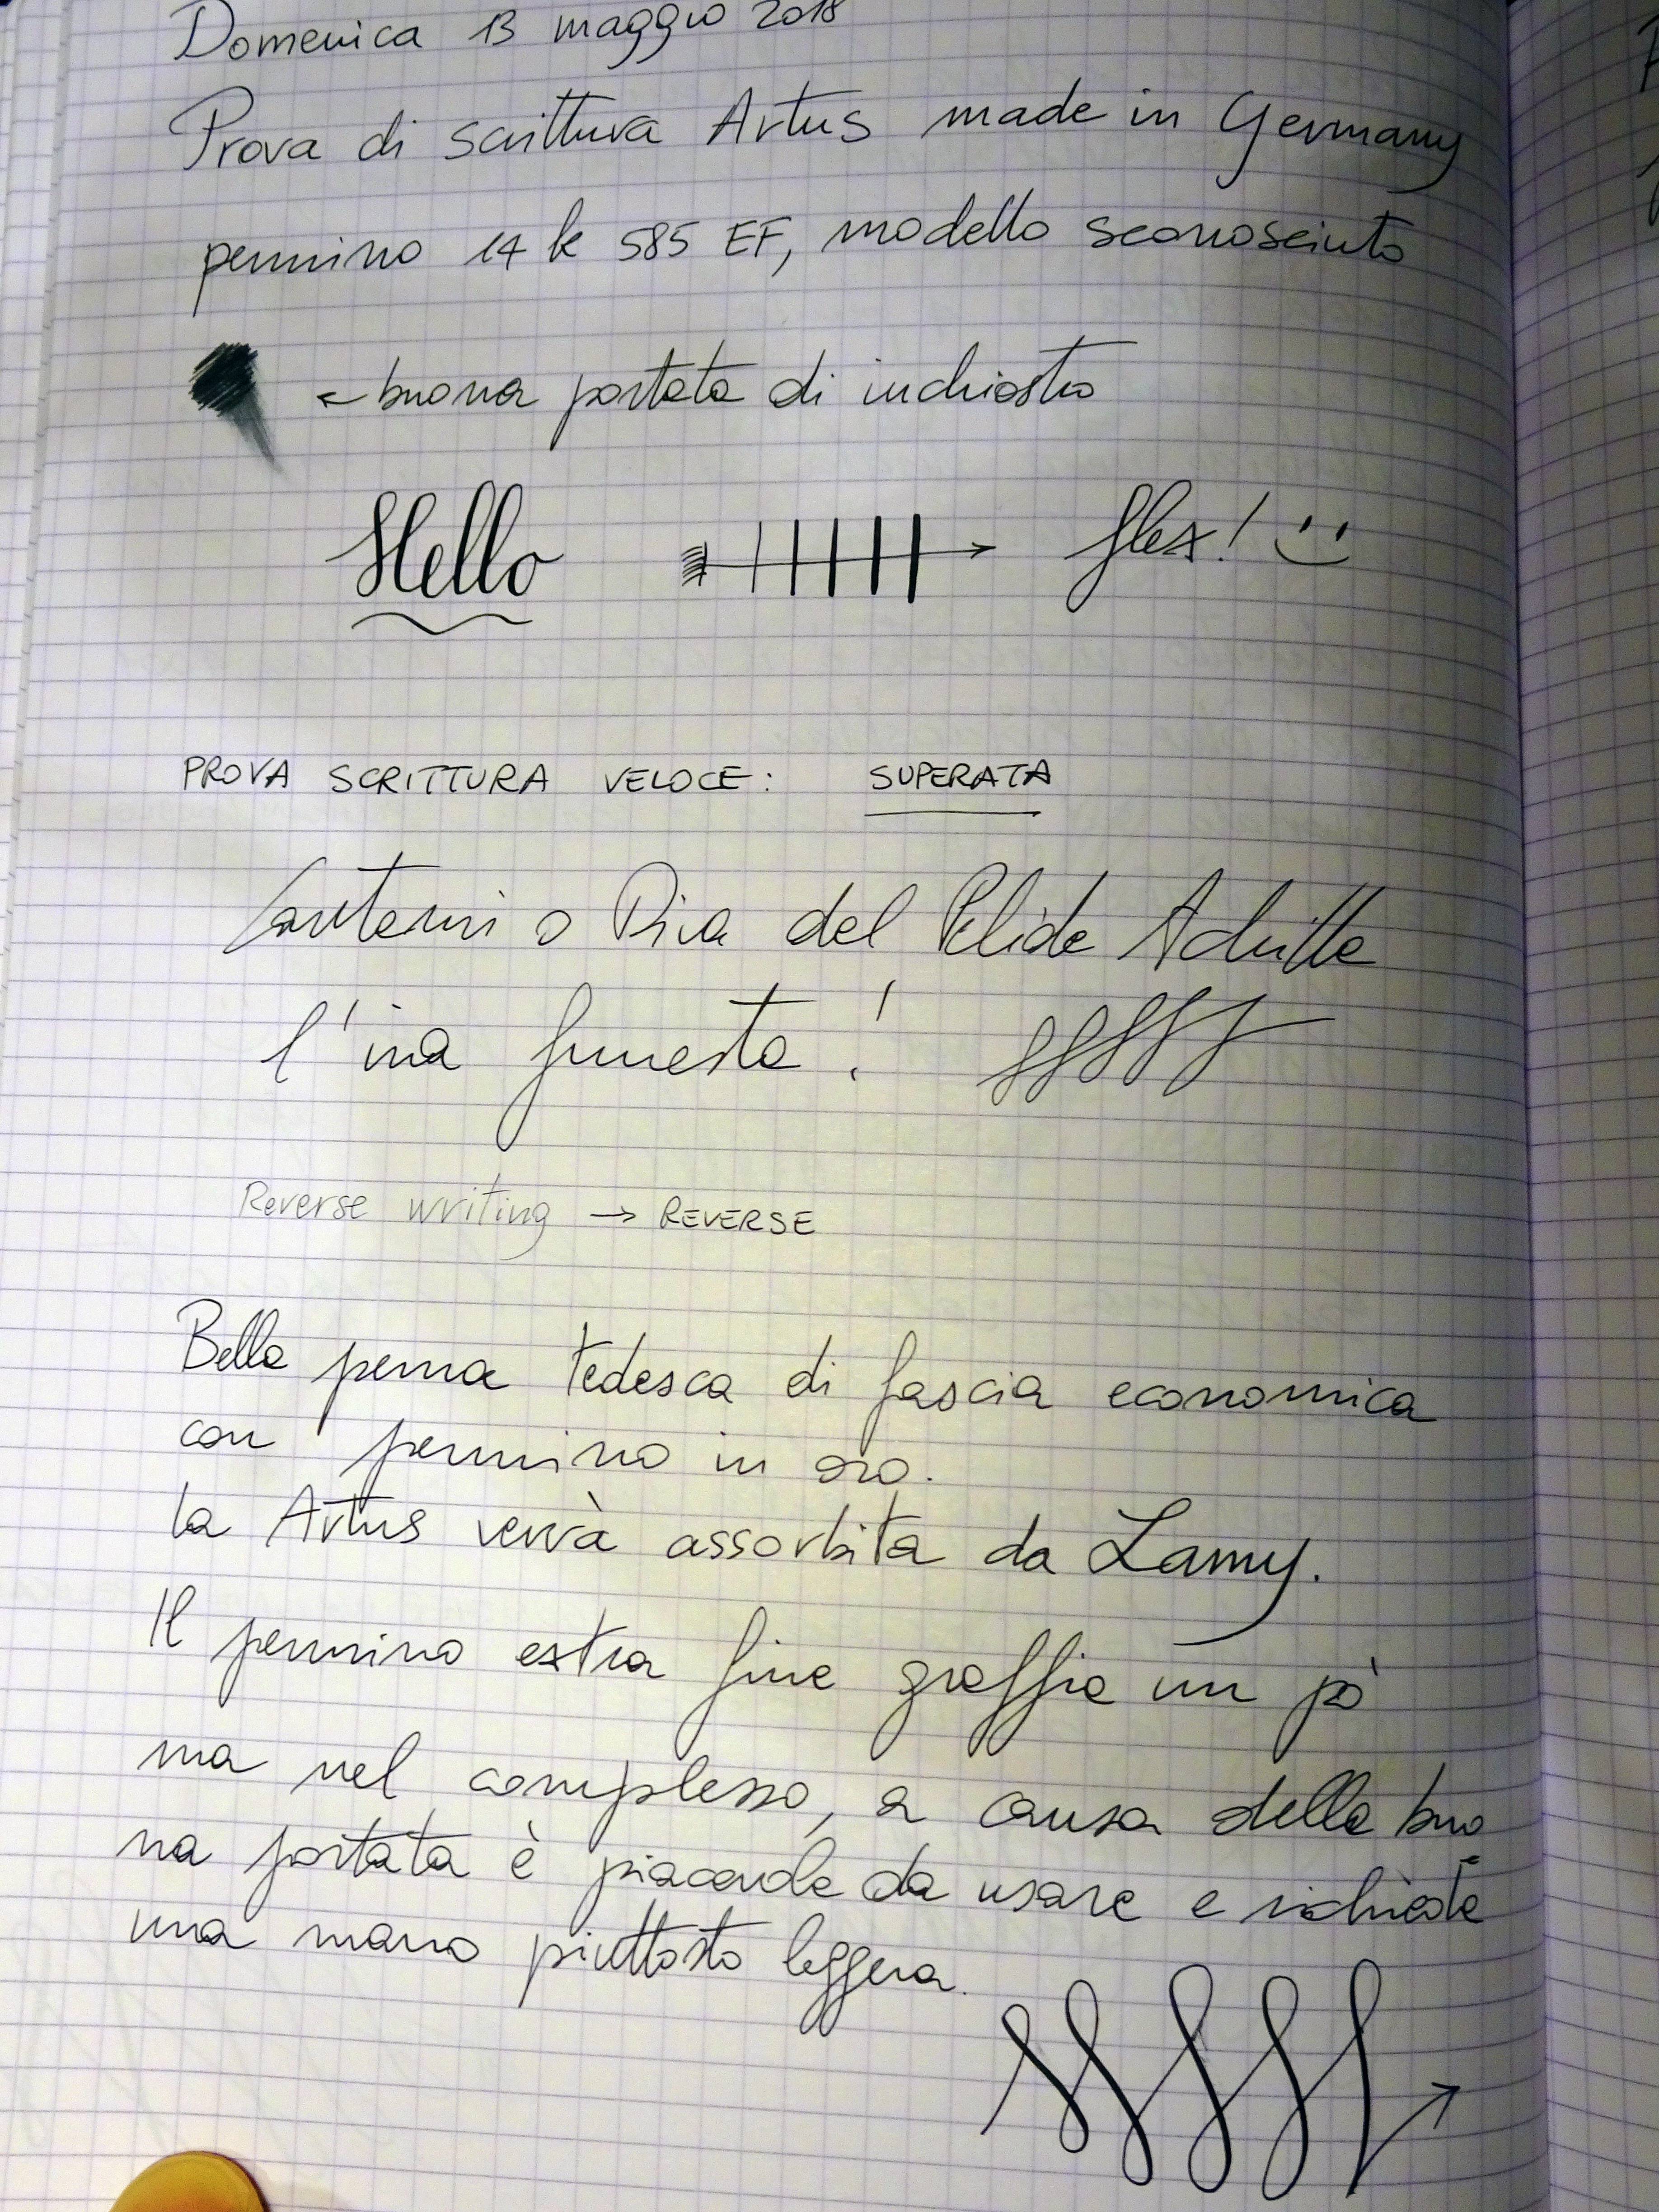 Domenica 13 maggio 2018
Prova di scrittura Artus made in Germany
pennino 14 k 585 EF, modello sconosciuto
← buona portata di inchiostro
Hello → flex! :)
PROVA SCRITTURA VELOCE: SUPERATA
Cantami o Diva del Pelide Achille
l'ira funesta!
Reverse writing → REVERSE
Bella penna tedesca di fascia economica
con pennino in oro.
la Artus verrà assorbita da Lamy.
Il pennino extra fine graffia un pò
ma nel complesso, a causa della buo
na portata è piacevole da usare e richiede
una mano piuttosto leggera.